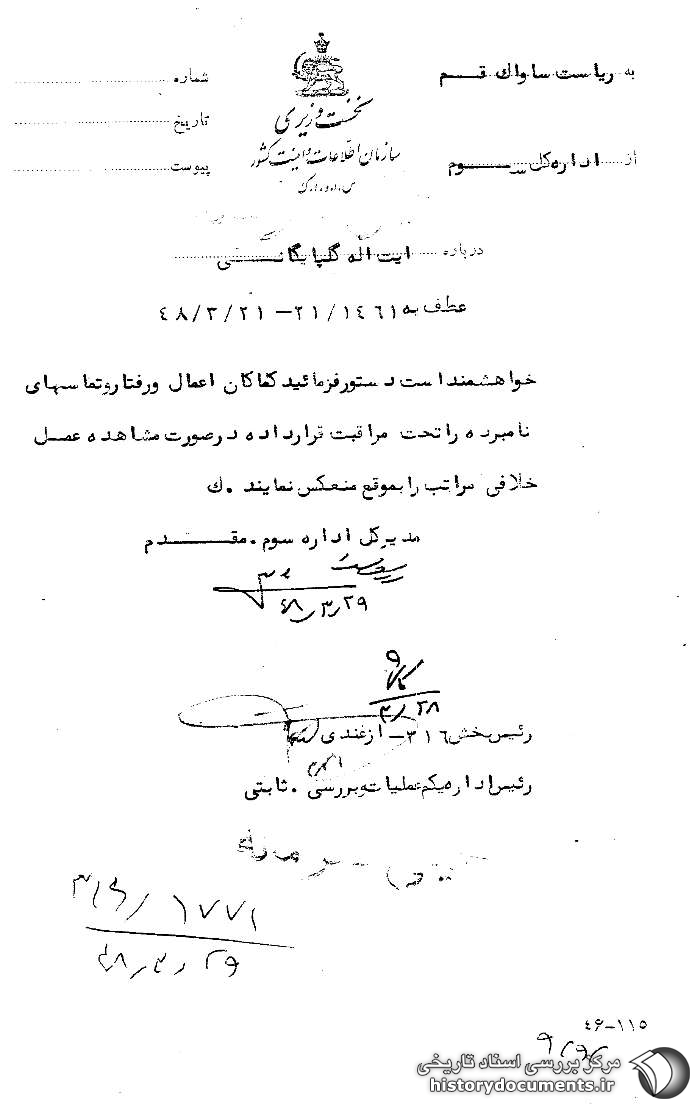 به ریاست ساواک قم
شماره
نخست وزیری
تاریخ
سازمان اطلاعات و امنیت کشور
از اداره کل سوم
پیوست
س.ا.و.ا.ک
درباره ایت اله گلپایگانی
عطف به ۲۱/۱٤٦۱ - ٤۸/۳/۲۱
خواهشمند است دستور فرمائید کماکان اعمال و رفتار و تماسهای
نامبرده را تحت مراقبت قرار داده در صورت مشاهده عمل
خلافی مراتب را بموقع منعکس نمایند. ك
مدیر کل اداره سوم. مقدم
٤۸/۳/۲۹
۳/۲۸
رئیس بخش ۳۱٦ - ازغندی
رئیس اداره یکم عملیات و بررسی. ثابتی
۳۱۶/۱۷۷۱
۴۸/۳/۲۹
٤۶-۱۱۵
مرکز بررسی اسناد تاریخی
historydocuments.ir